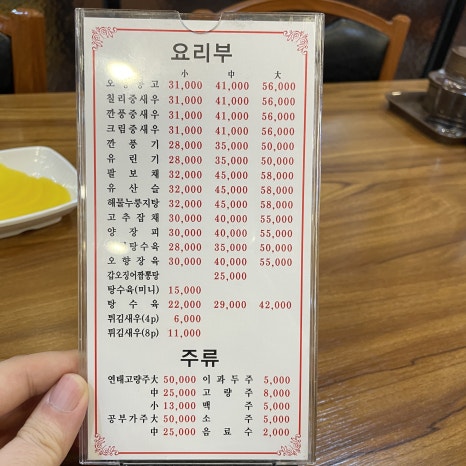 요리부
小 中 大
오룡해고 31,000 41,000 56,000
칠리중새우 31,000 41,000 56,000
깐풍중새우 31,000 41,000 56,000
크림중새우 31,000 41,000 56,000
깐풍기 28,000 35,000 50,000
유린기 28,000 35,000 50,000
팔보채 32,000 45,000 58,000
유산슬 32,000 45,000 58,000
해물누룽지탕 32,000 45,000 58,000
고추잡채 30,000 40,000 55,000
양장피 30,000 40,000 55,000
탕수육 28,000 35,000 50,000
오향장육 30,000 40,000 55,000
갑오징어짬뽕탕 25,000
탕수육(미니) 15,000
탕수육 22,000 29,000 42,000
튀김새우(4p) 6,000
튀김새우(8p) 11,000
주류
연태고량주大 50,000 이과두주 5,000
中 25,000 고량주 8,000
小 13,000 맥주 5,000
공부가주大 50,000 소주 5,000
中 25,000 음료수 2,000